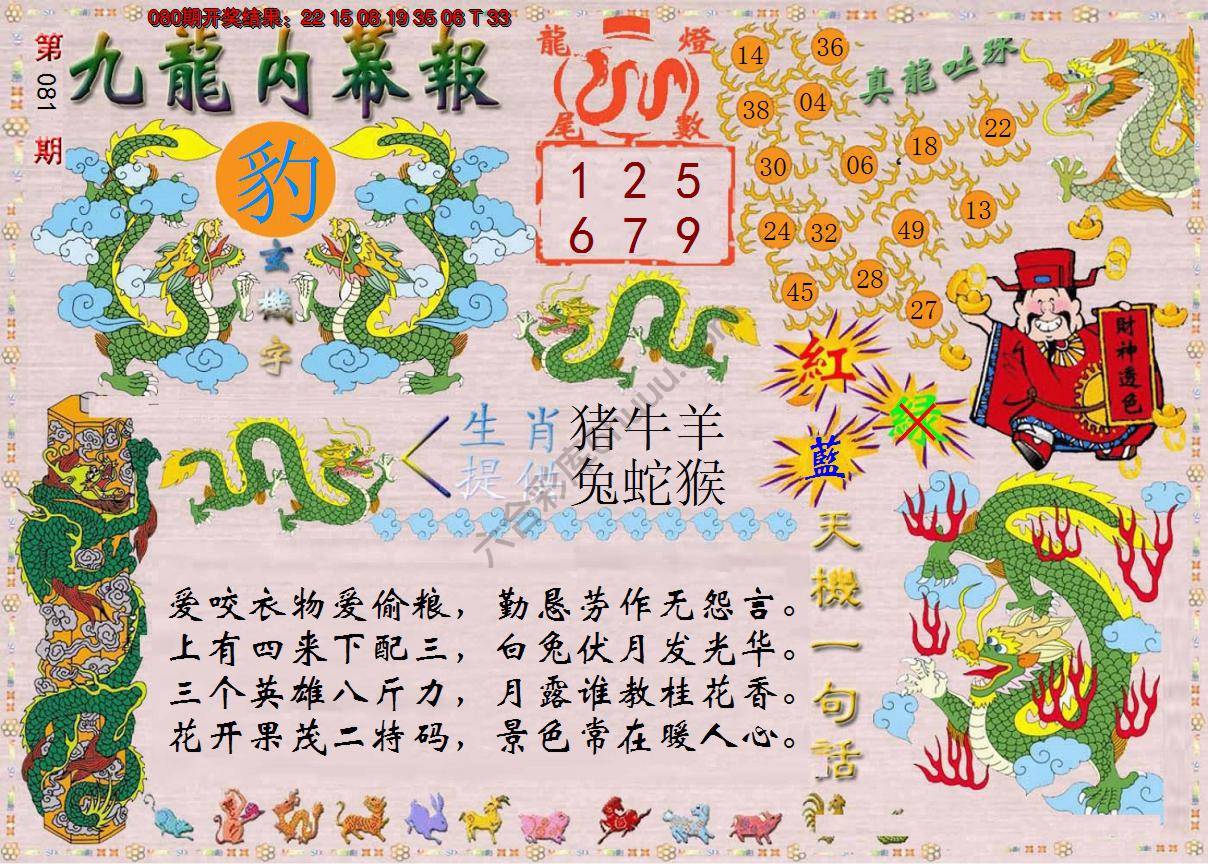 080期开奖结果：22 15 08 19 35 06 T 33
第081期
九龍内幕報
豹
玄機字
龍燈尾數
1 2 5
6 7 9
真龍吐珠
14 36
38 04
30 06 18 22
24 32 49 13
45 28 27
財神透色
紅
綠
藍
生肖 猪牛羊
提供 兔蛇猴
天機一句話
爱咬衣物爱偷粮，勤恳劳作无怨言。
上有四来下配三，白兔伏月发光华。
三个英雄八斤力，月露谁教桂花香。
花开果茂二特码，景色常在暖人心。